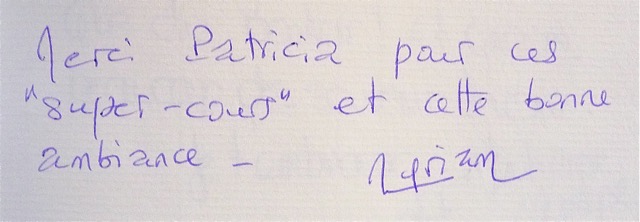 Merci Patricia pour ces
"super-cours" et cette bonne
ambiance -